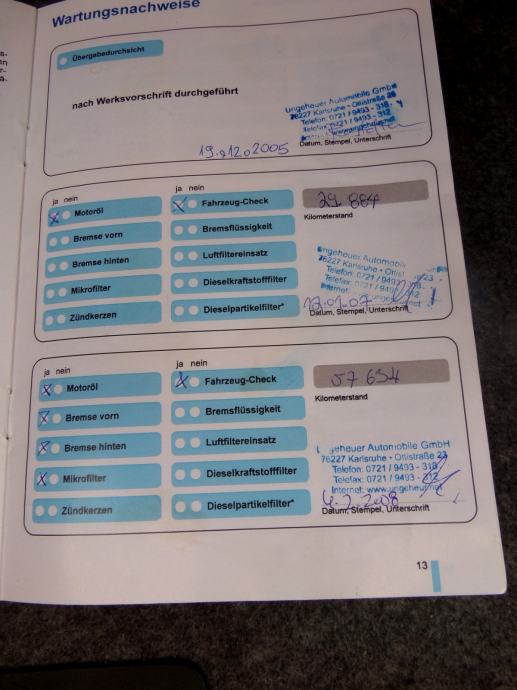 Wartungsnachweise
Übergabedurchsicht
nach Werksvorschrift durchgeführt
Ungeheuer Automobile GmbH
76227 Karlsruhe • Ottostraße 23
Telefon: 0721 / 9493 - 318
Telefax: 0721 / 9493 - 312
19.12.2005
Datum, Stempel, Unterschrift
ja nein
ja nein
Motoröl
Fahrzeug-Check
29 884
Bremse vorn
Bremsflüssigkeit
Kilometerstand
Bremse hinten
Luftfiltereinsatz
Ungeheuer Automobil
76227 Karlsruhe • Ottost 23
Telefon: 0721 / 9493
Telefax: 0721 / 949 312
Internet:
Mikrofilter
Dieselkraftstofffilter
Zündkerzen
Dieselpartikelfilter*
12.01.07
Datum, Stempel, Unterschrift
ja nein
ja nein
Motoröl
Fahrzeug-Check
57 654
Bremse vorn
Bremsflüssigkeit
Kilometerstand
Bremse hinten
Luftfiltereinsatz
geheuer Automobile GmbH
76227 Karlsruhe • Ottostraße 23
Telefon: 0721 / 9493 - 318
Telefax: 0721 / 9493 - 312
Internet: www.ungeheuer.net
Mikrofilter
Dieselkraftstofffilter
Zündkerzen
Dieselpartikelfilter*
4.2.2008
Datum, Stempel, Unterschrift
13